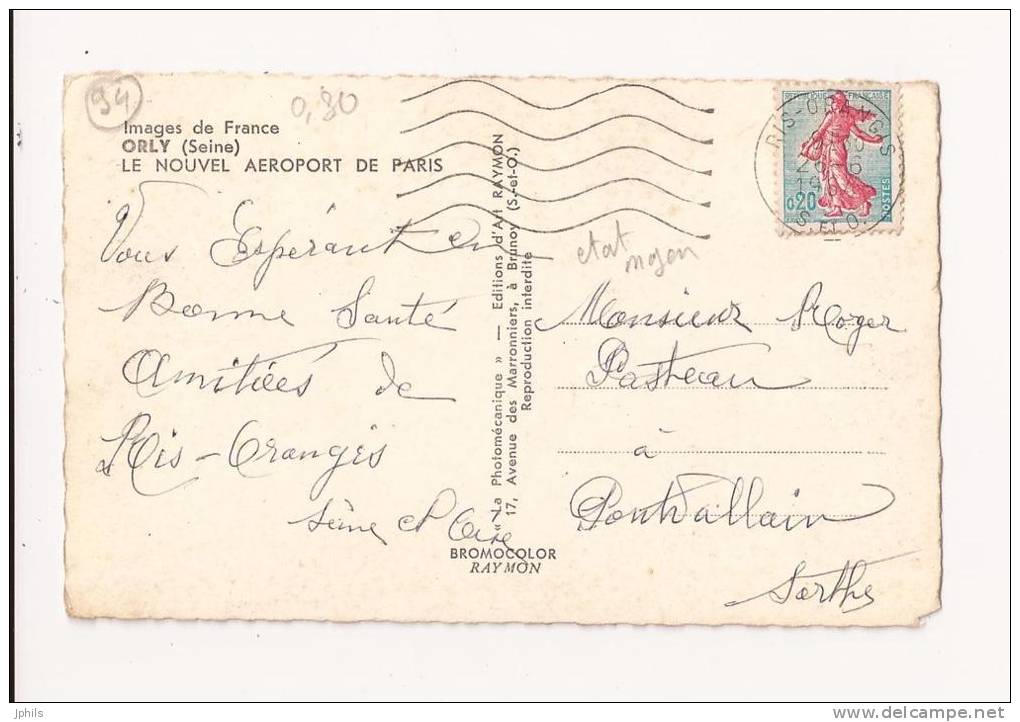 94
0,80
Images de France
ORLY (Seine)
LE NOUVEL AEROPORT DE PARIS
Vous Espérant en
Bonne Santé
Amitiées de
Ris-Orangis
Seine et Oise
« La Photomécanique » — Editions d'Art RAYMON
17, Avenue des Marronniers, à Brunoy (S.-et-O.)
Reproduction interdite
BROMOCOLOR
RAYMON
REPUBLIQUE FRANÇAISE
0,20
POSTES
RIS-ORANGIS
S. ET O.
etat
moyen
Monsieur Roger
Pasteau
à
Pontvallain
Sarthe
jphils
http://www.delcampe.net